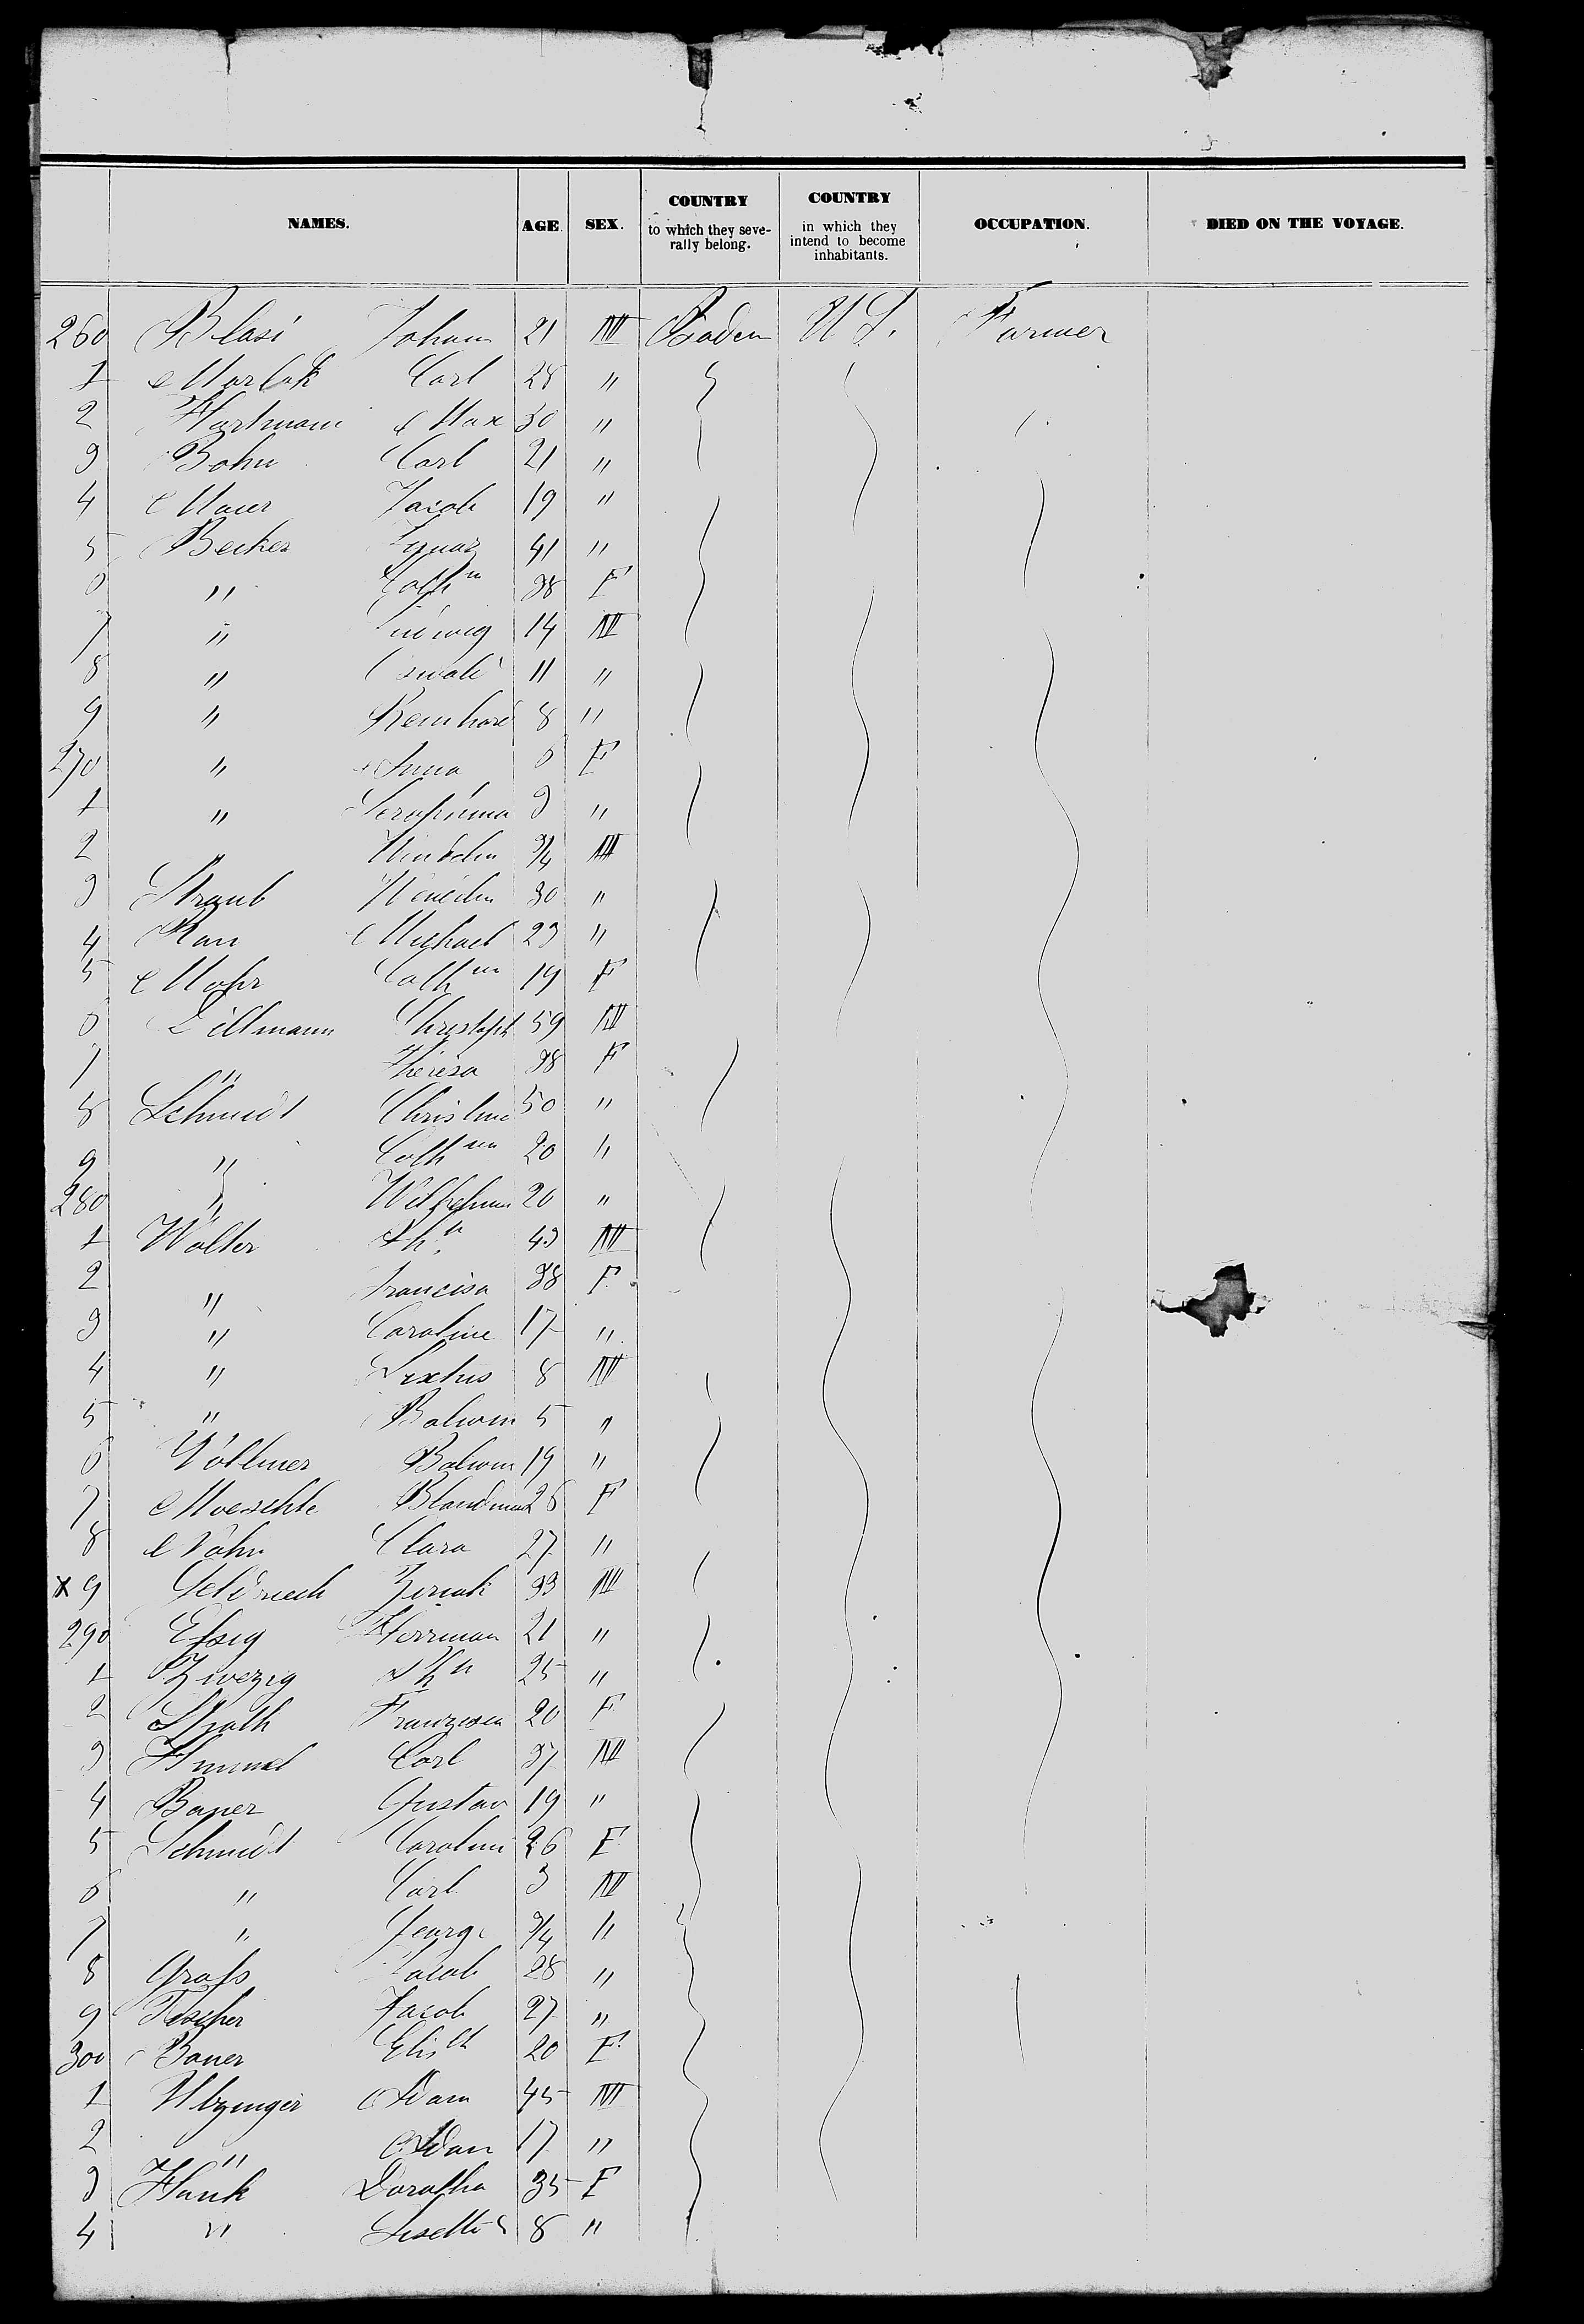 NAMES. AGE. SEX. COUNTRY to which they severally belong. COUNTRY in which they intend to become inhabitants. OCCUPATION. DIED ON THE VOYAGE.
260 Blasi Johann 21 M Baden U S. Farmer
1 Carl 28 "
2 Hartmann Max 30 "
3 Bohn Carl 21 "
4 Maier Jacob 19 "
5 Becker Ignaz 41 "
6 " Cath 38 F
7 " Ludwig 14 M
8 " Oswald 11 "
9 " Reinhard 8 "
270 " Anna 6 F
1 " Seraphima 3 "
2 " Wendelin 3/4 M
3 Straub Wendelin 30 "
4 Rau Michael 23 "
5 Mohr Cath 19 F
6 Dillmann Christoph 59 M
7 " Theresa 38 F
8 Schmidt Christine 50 "
9 " Cath 20 "
280 " 20 "
1 Walter 43 M
2 " Francisa 38 F
3 " Caroline 17 "
4 " Sixtus 8 M
5 " 5 "
6 Vollmer 19 "
7 26 F
8 Clara 27 "
x 9 33 M
290 Eßig Herrman 21 "
1 25 "
2 20 F
3 Carl 37 M
4 Bauer Gustav 19 "
5 Schmidt Carolin 26 F
6 " Carl 3 M
7 " George 3/4 "
8 Graß Jacob 28 "
9 Fischer Jacob 27 "
300 Bauer Elis 20 F
1 Adam 45 M
2 " Adam 17 "
3 Hauk Dorothea 35 F
4 " Lisette 8 "